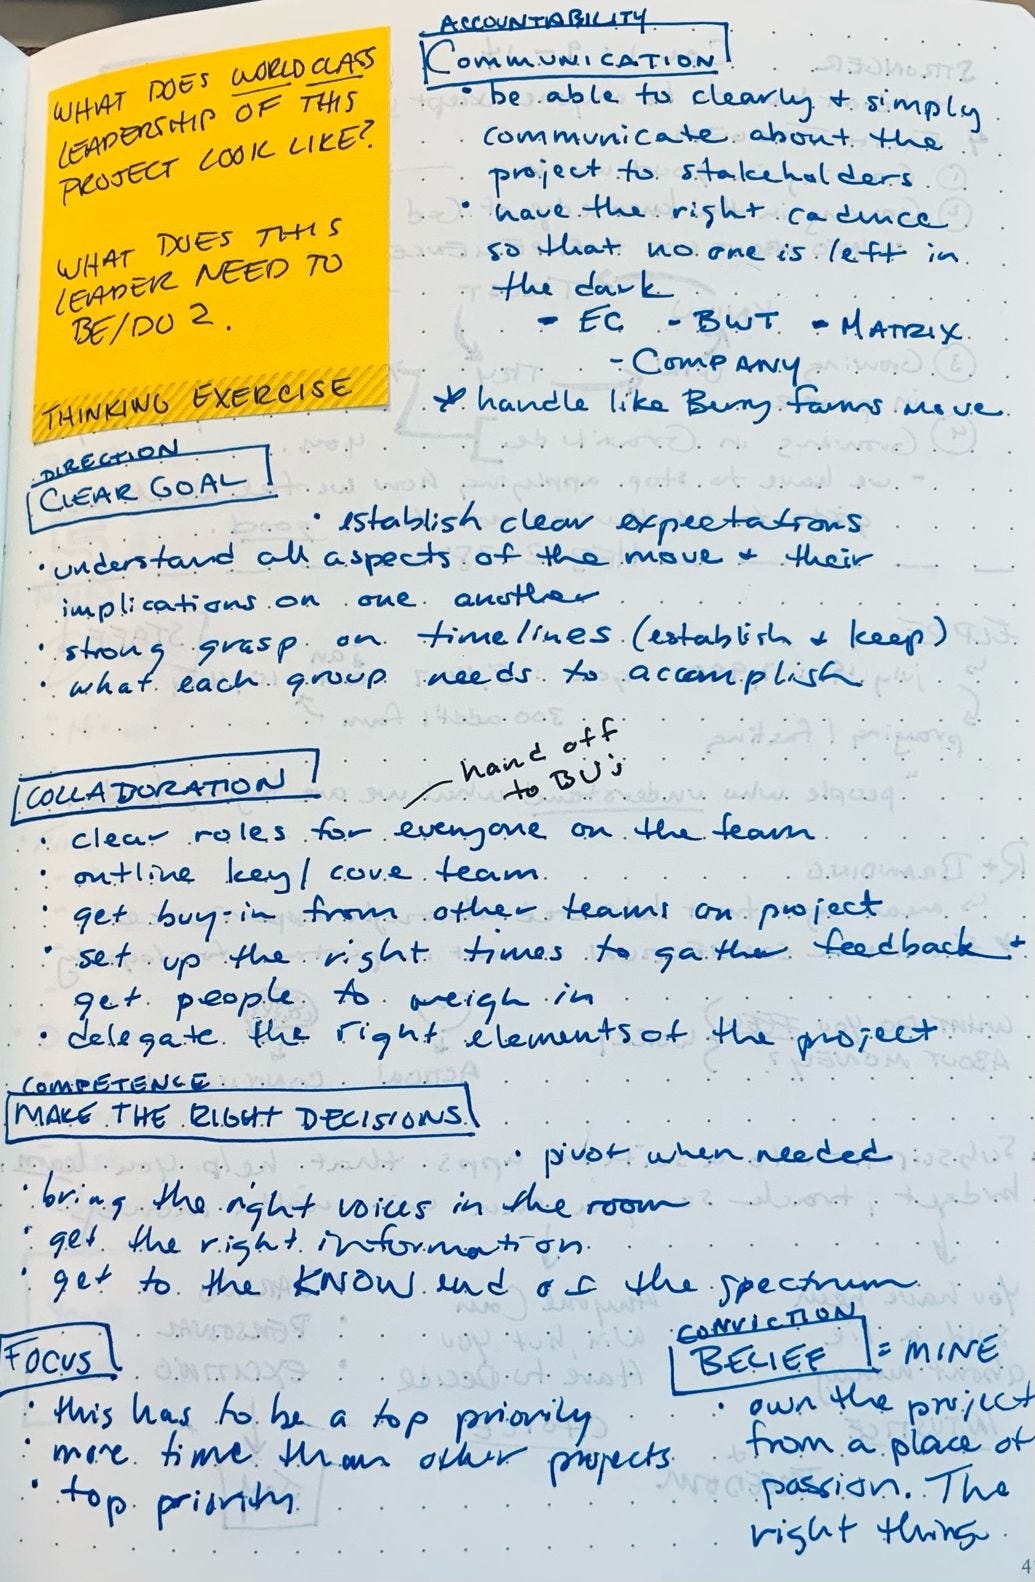 WHAT DOES WORLD CLASS
LEADERSHIP OF THIS
PROJECT LOOK LIKE?
WHAT DOES THIS
LEADER NEED TO
BE/DO?
THINKING EXERCISE
ACCOUNTABILITY
COMMUNICATION
• be able to clearly + simply
communicate about the
project to stakeholders
• have the right cadence
so that no one is left in
the dark
- EC - BWT - MATRIX
- COMPANY
* handle like Berry farms move
DIRECTION
CLEAR GOAL
• establish clear expectations
• understand all aspects of the move + their
implications on one another
• strong grasp on timelines (establish + keep)
• what each group needs to accomplish
hand off
to BU's
COLLABORATION
• clear roles for everyone on the team
• outline key/core team
• get buy-in from other teams on project
• set up the right times to gather feedback +
get people to weigh in
• delegate the right elements of the project
COMPETENCE
MAKE THE RIGHT DECISIONS
• pivot when needed
• bring the right voices in the room
• get the right information
• get to the KNOW end of the spectrum
FOCUS
• this has to be a top priority
• more time than other projects
• top priority
CONVICTION
BELIEF = MINE
• own the project
from a place of
passion. The
right thing
4